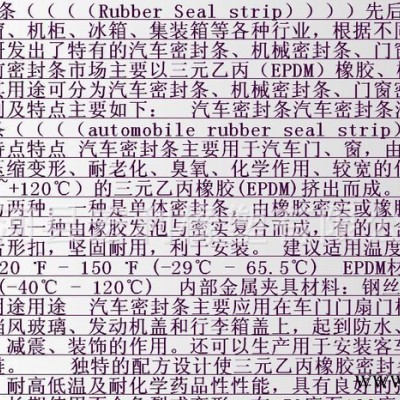 条((((Rubber Seal strip))))先后
机柜、冰箱、集装箱等各种行业，根据不同
研发出了特有的汽车密封条、机械密封条、门窗
密封条市场主要以三元乙丙（EPDM）橡胶、
用途可分为汽车密封条、机械密封条、门窗密
及特点主要如下： 汽车密封条汽车密封条
条((((automobile rubber seal strip)
特点特点 汽车密封条主要用于汽车门、窗，由
压缩变形、耐老化、臭氧、化学作用、较宽的
~+120℃）的三元乙丙橡胶(EPDM)挤出而成。
两种，一种是单体密封条，由橡胶密实或橡胶
另一种由橡胶发泡与密实复合而成，有的
形扣，坚固耐用，利于安装。 建议适用温度
20 ℉ - 150 ℉ (-29℃ - 65.5℃) EPDM材
(-40℃ - 120℃) 内部金属夹具材料：钢丝
用途用途 汽车密封条主要应用在车门门扇门框
挡风玻璃、发动机盖和行李箱盖上，起到防水、
减震、装饰的作用。还可以生产用于安装客车
。 独特的配方设计使三元乙丙橡胶密封
耐高低温及耐化学药品性性能，具有良好
www